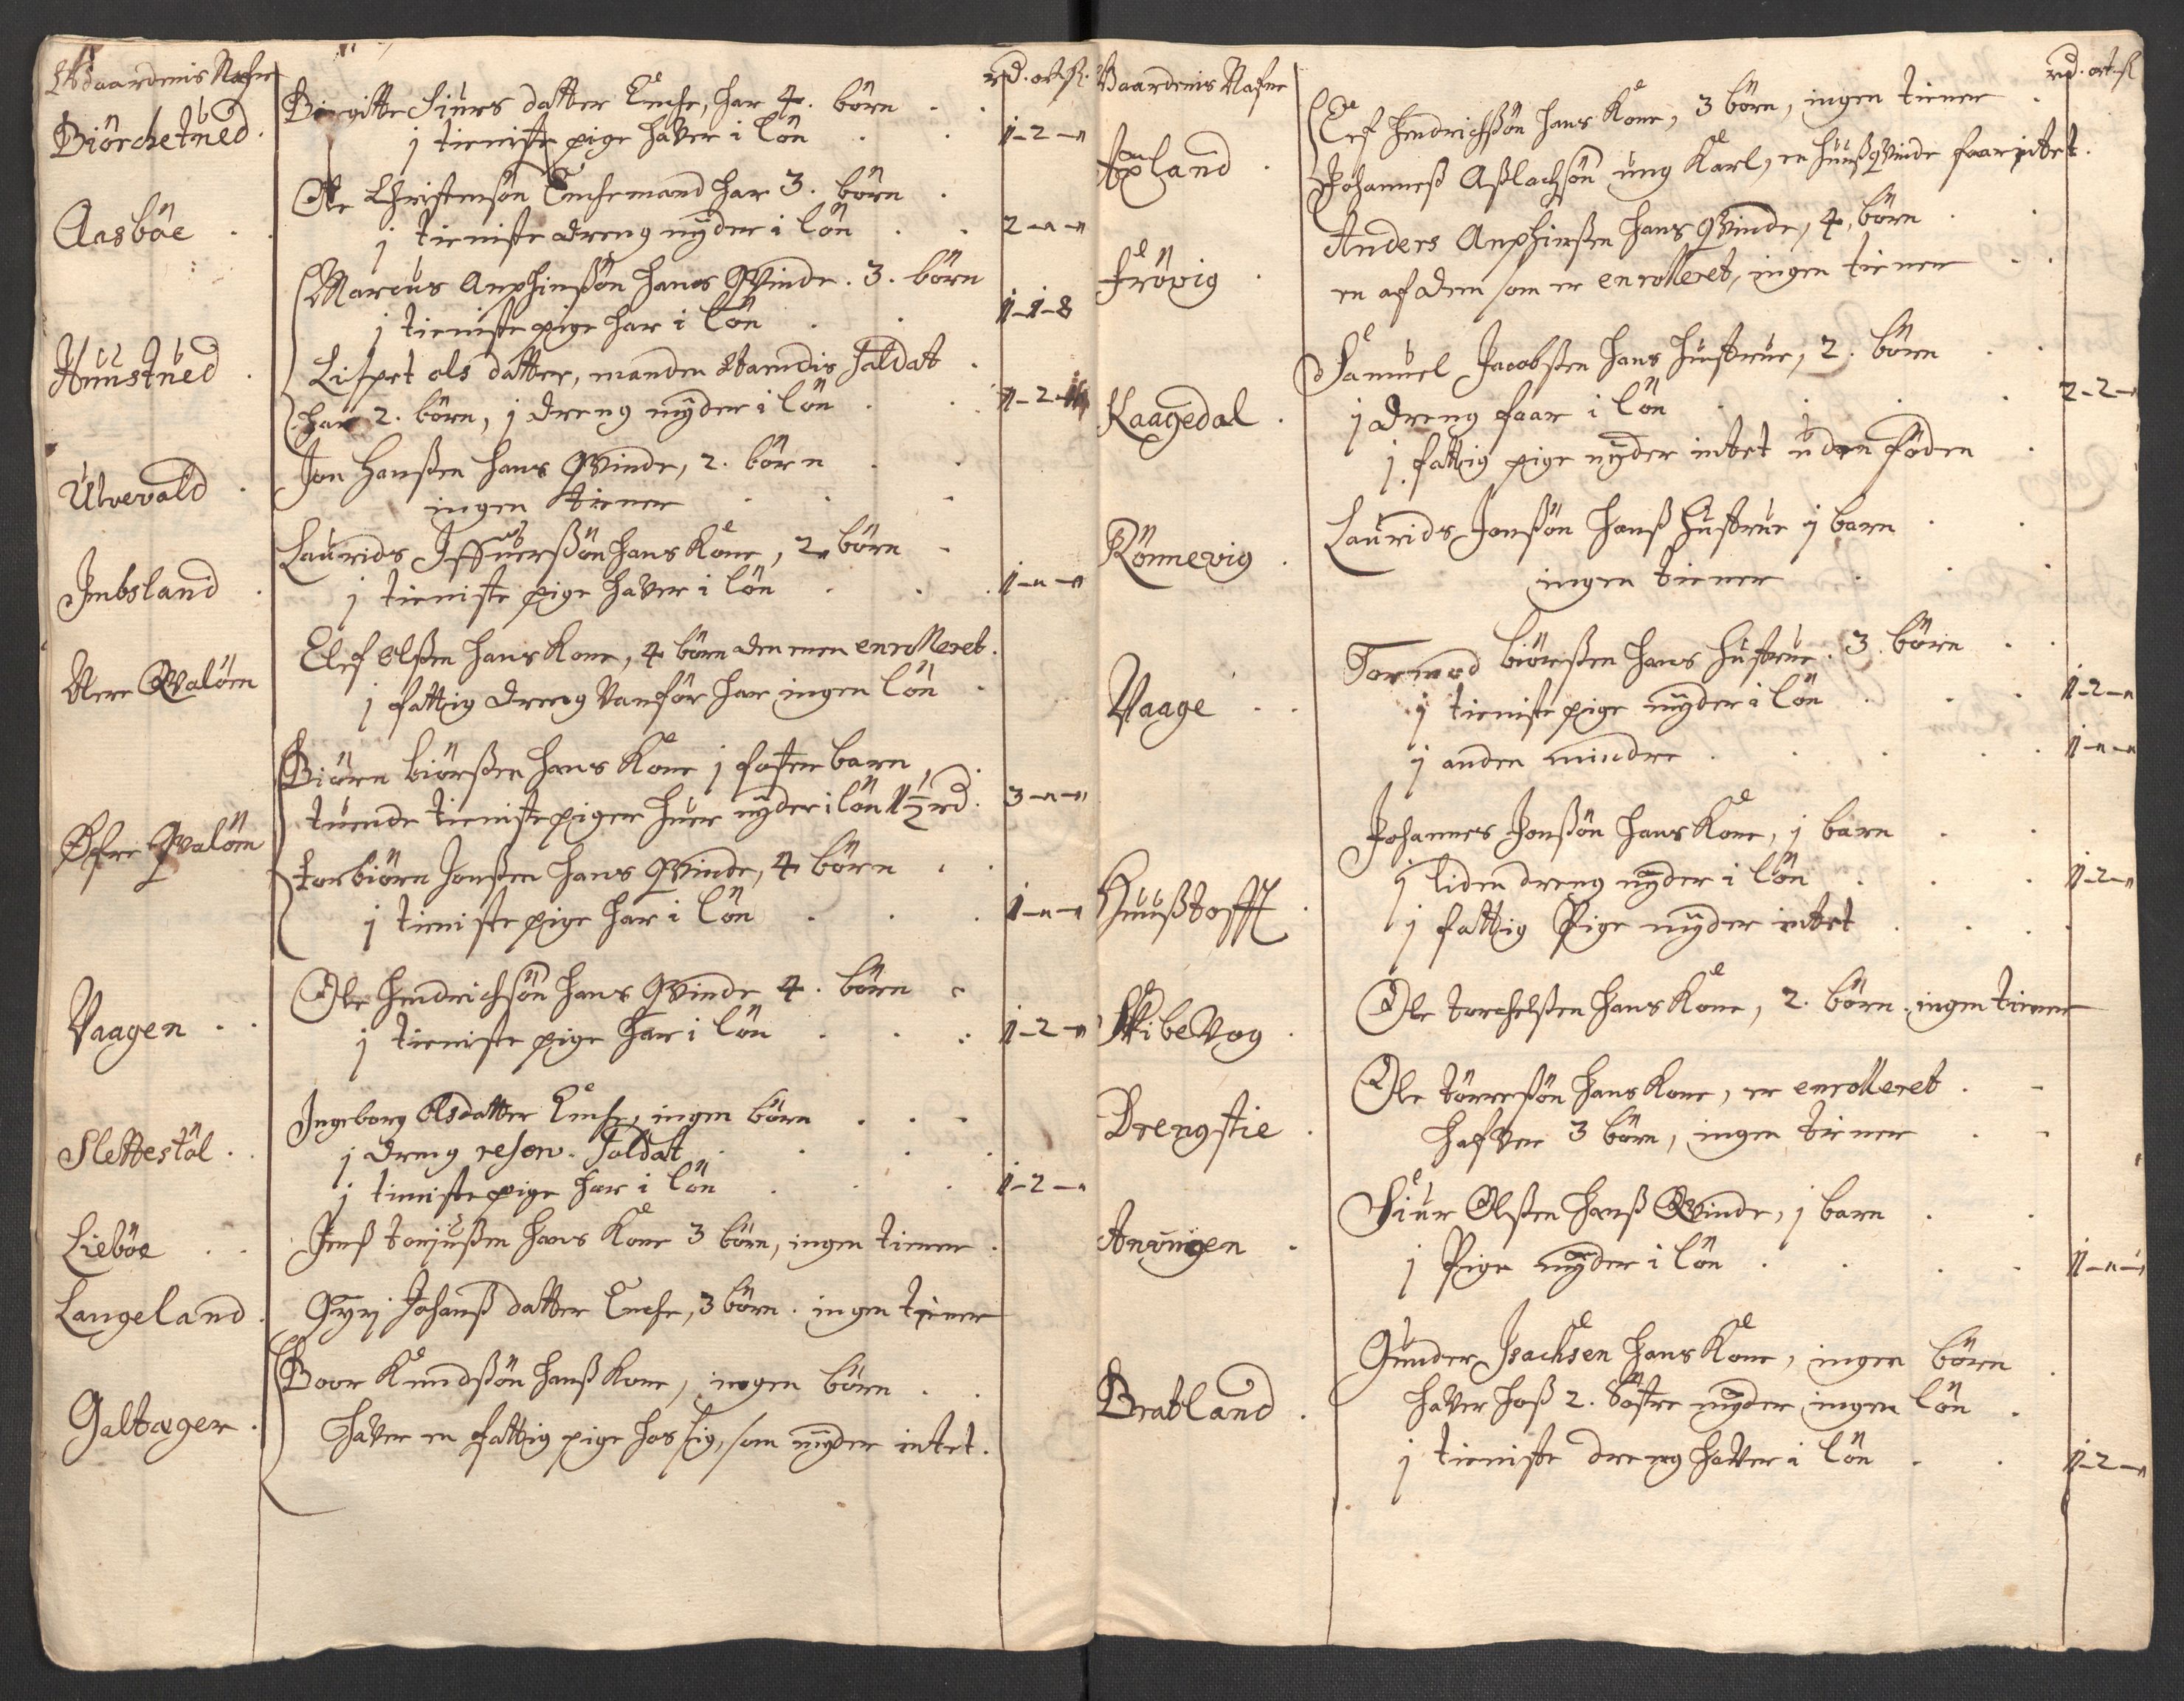 Gaardenis Nafne
rd. ort. ß.
Biörchetued.
Birgitte Siurs datter Enche, har 4. börn
1 tieniste pige haver i lön
1-2-"
Aasböe
Ole Christensön Enchemand har 3. börn
1 tieniste dreng nÿder i lön
2-"-"
Marcus Anphinßön hans Qvinde. 3. börn
Huustued
1 tieniste pige har i lön
1-1-8
Lisspet ols datter, manden Soldat
har 2. börn, 1 dreng nÿder i lön
1-2-
Utvevald
Jon Hanßen hans Qvinde, 2. börn
ingen tiener
Imbsland
Laurids Iffuerßön hans Kone, 2 börn
1 tieniste pige haver i lön
1-"-"
Nere Qvalöen
Elef Olßen hans Kone, 4 börn den ene enrolleret.
1 fattig dreng Vanför har ingen lön
Biörn Biörßen hans Kone 1 foster barn
Øfre Qvalöen
tuende tieniste piger huer nÿder i lön 1½ rd.
3-"-"
torbiörn Jonßen hans Qvinde, 4 börn
1 tieniste pige har i lön
1-"-"
Vaagen
Ole Hendrichsön hans Qvinde 4. börn
1 tieniste pige har i lön
1-2-"
Slettestöl
Ingeborg Olsdatter Enche, ingen börn
1 dreng reserv. Soldat
1 tieniste pige har i lön
1-2-"
Lieböe
Jens torjußen hans Kone 3 börn, ingen tiener.
Langeland.
Gyri Johanß datter Enche, 3 börn. ingen tiener
Galtæger.
Boor Knudßön hanß Kone, ingen börn
haver en fattig pige hos sig, som nÿder intet.
Gaardenis Nafne
rd. ort ß
Axland
Elef Hendrichßön hans Kone, 3 börn, ingen tiener
Johanneß Aßlachßön ung Karl, en huußqvinde faar intet.
Frövig
Anders Anphinßen hans Qvinde, 4, börn
en af dem som er enrolleret, ingen tiener
Kaagedal
Samuel Jacobßen hans hustrue, 2. börn
1 dreng faar i lön
2-2-"
1. fattig pige nÿder intet uden föden
Rönnevig
Laurids Jonßön hanß hustrue 1 barn
ingen tiener
Vaage
Tormod Biörßen hans hustrue. 3. börn
1 tieniste pige nÿder i lön
1-2-"
1 anden mindre
1-"-"
Johannes Jonßön hans Kone, 1 barn
Huußtofft
1 liden dreng nÿder i lön
1-2-"
1 fattig Pige nÿder intet
Skibevog
Ole torchelßen hans Kone, 2. börn. ingen tiener
Drengstie
Ole törresön hans Kone, er enrolleret
hafver 3 börn, ingen tiener
Anvigen
Siur Olßen hanß Qvinde, 1 barn
1 Pige nÿder i lön
1-"-"
Bratland
Gunder Isachsen hans Kone, ingen börn
haver hoß 2. Söstre nÿder ingen lön
1 tieniste dreng haver i lön
1-2-"